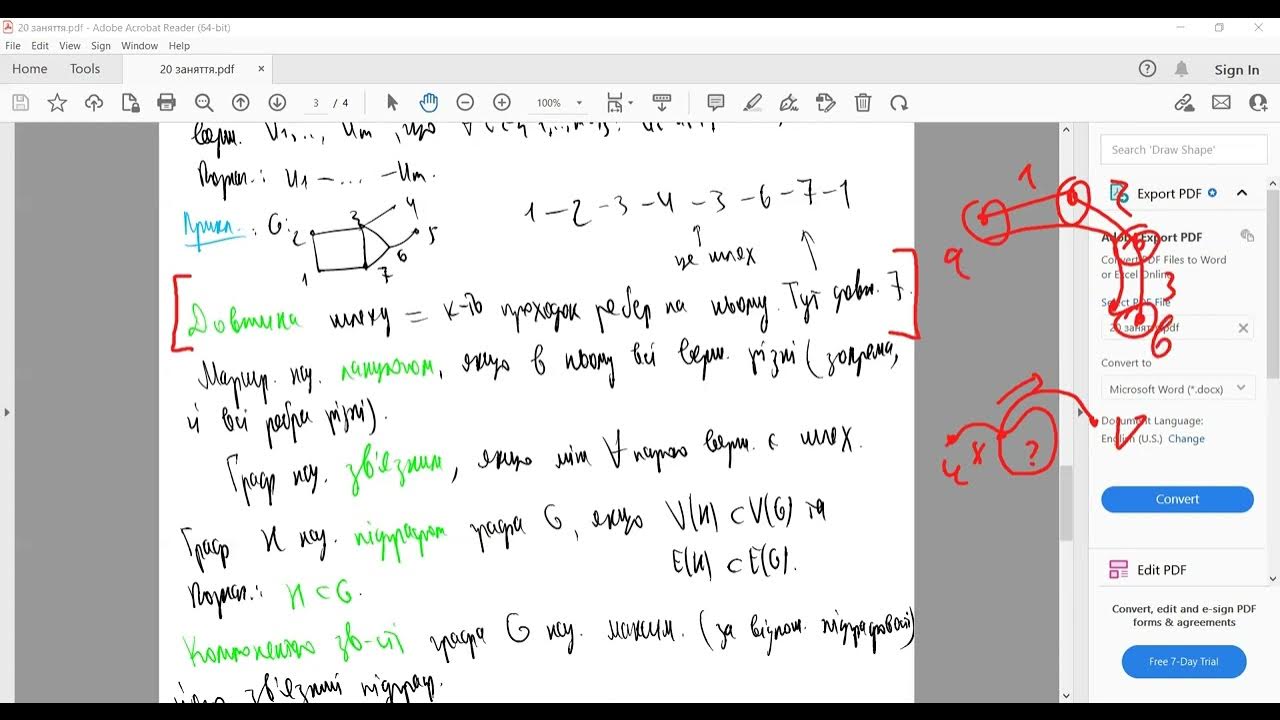 20 заняття.pdf - Adobe Acrobat Reader (64-bit)
File Edit View Sign Window Help
Home Tools 20 заняття.pdf × Sign In
3 / 4 100%
верш. U1,..., Um, що ∀
Познач.: U1 – ... – Um.
Прикл.: G:
2 3 4 5 6 7 1
1 – 2 – 3 – 4 – 3 – 6 – 7 – 1
це шлях
[Довжина шляху = к-ть проходж. ребер на ньому. Тут довж. 7.]
Маршр. наз. ланцюгом, якщо в ньому всі верш. різні (зокрема,
й всі ребра різні).
Граф наз. зв'язним, якщо між ∀ парою верш. є шлях.
Граф H наз. підграфом графа G, якщо V(H) ⊂ V(G) та
E(H) ⊂ E(G).
Познач.: H ⊂ G.
Компонентою зв-сті графа G наз. максим. (за віднош. підграфовості)
його зв'язний підграф.
1
2
9
3
6
u x ? V
Search 'Draw Shape'
Export PDF
Adobe Export PDF
Convert PDF Files to Word
or Excel Online
Select PDF File
20 заняття.pdf
Convert to
Microsoft Word (*.docx)
Document Language:
English (U.S.) Change
Convert
Edit PDF
Convert, edit and e-sign PDF
forms & agreements
Free 7-Day Trial